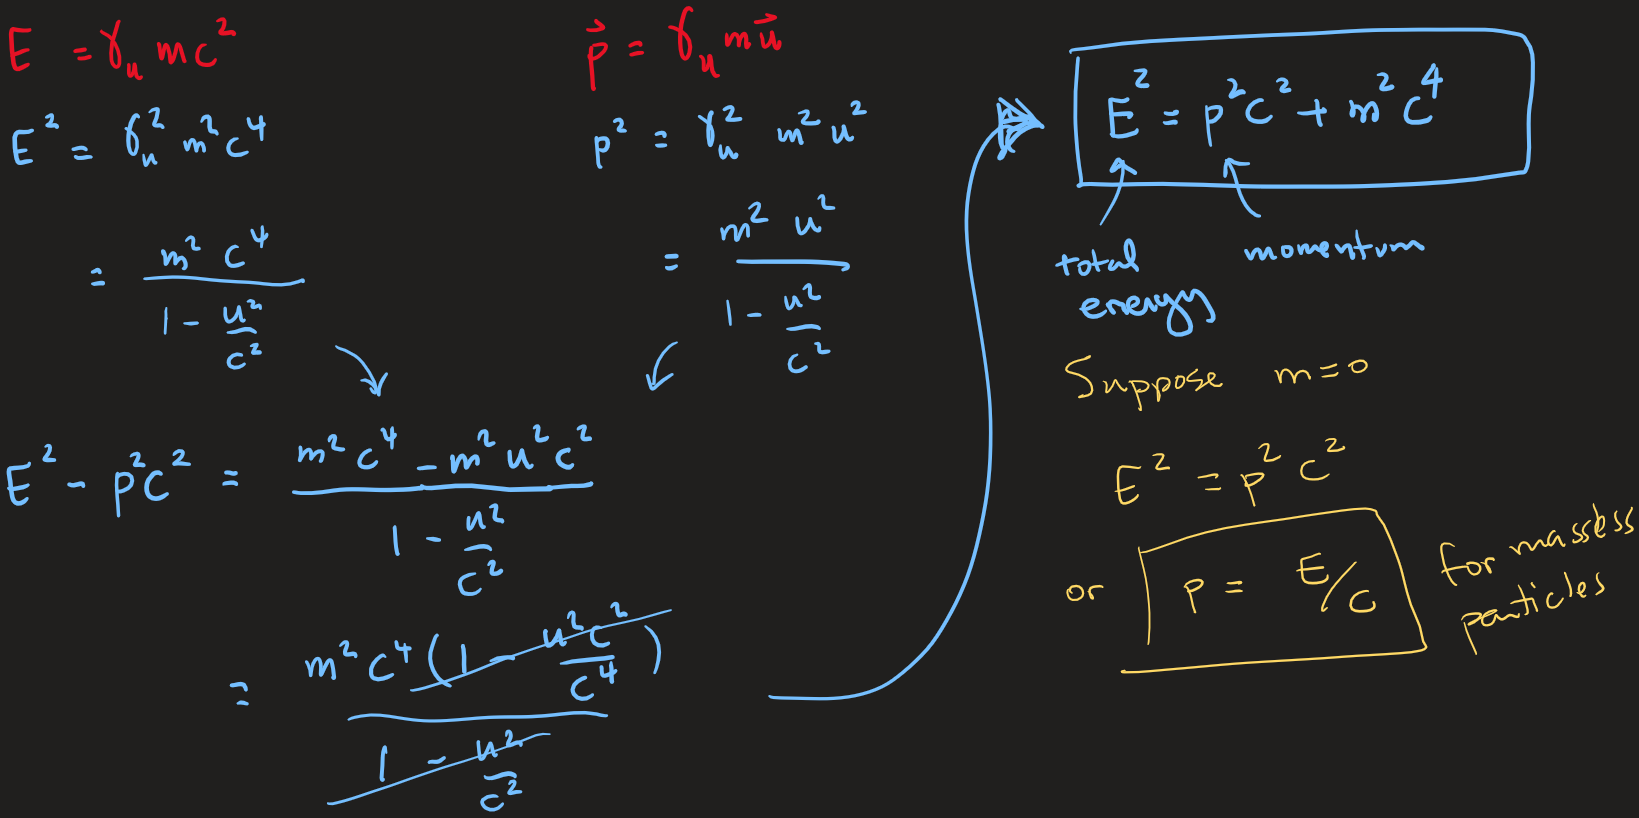 E = γ_u mc²
E² = γ_u² m²c⁴
= m² c⁴ / (1 - u²/c²)
p⃗ = γ_u m u⃗
p² = γ_u² m² u²
= m² u² / (1 - u²/c²)
E² - p²c² = (m² c⁴ - m² u² c²) / (1 - u²/c²)
= m² c⁴ (1 - u²c²/c⁴) / (1 - u²/c²)
E² = p²c² + m²c⁴
total energy
momentum
Suppose m=0
E² = p² c²
or p = E/c for massless
particles